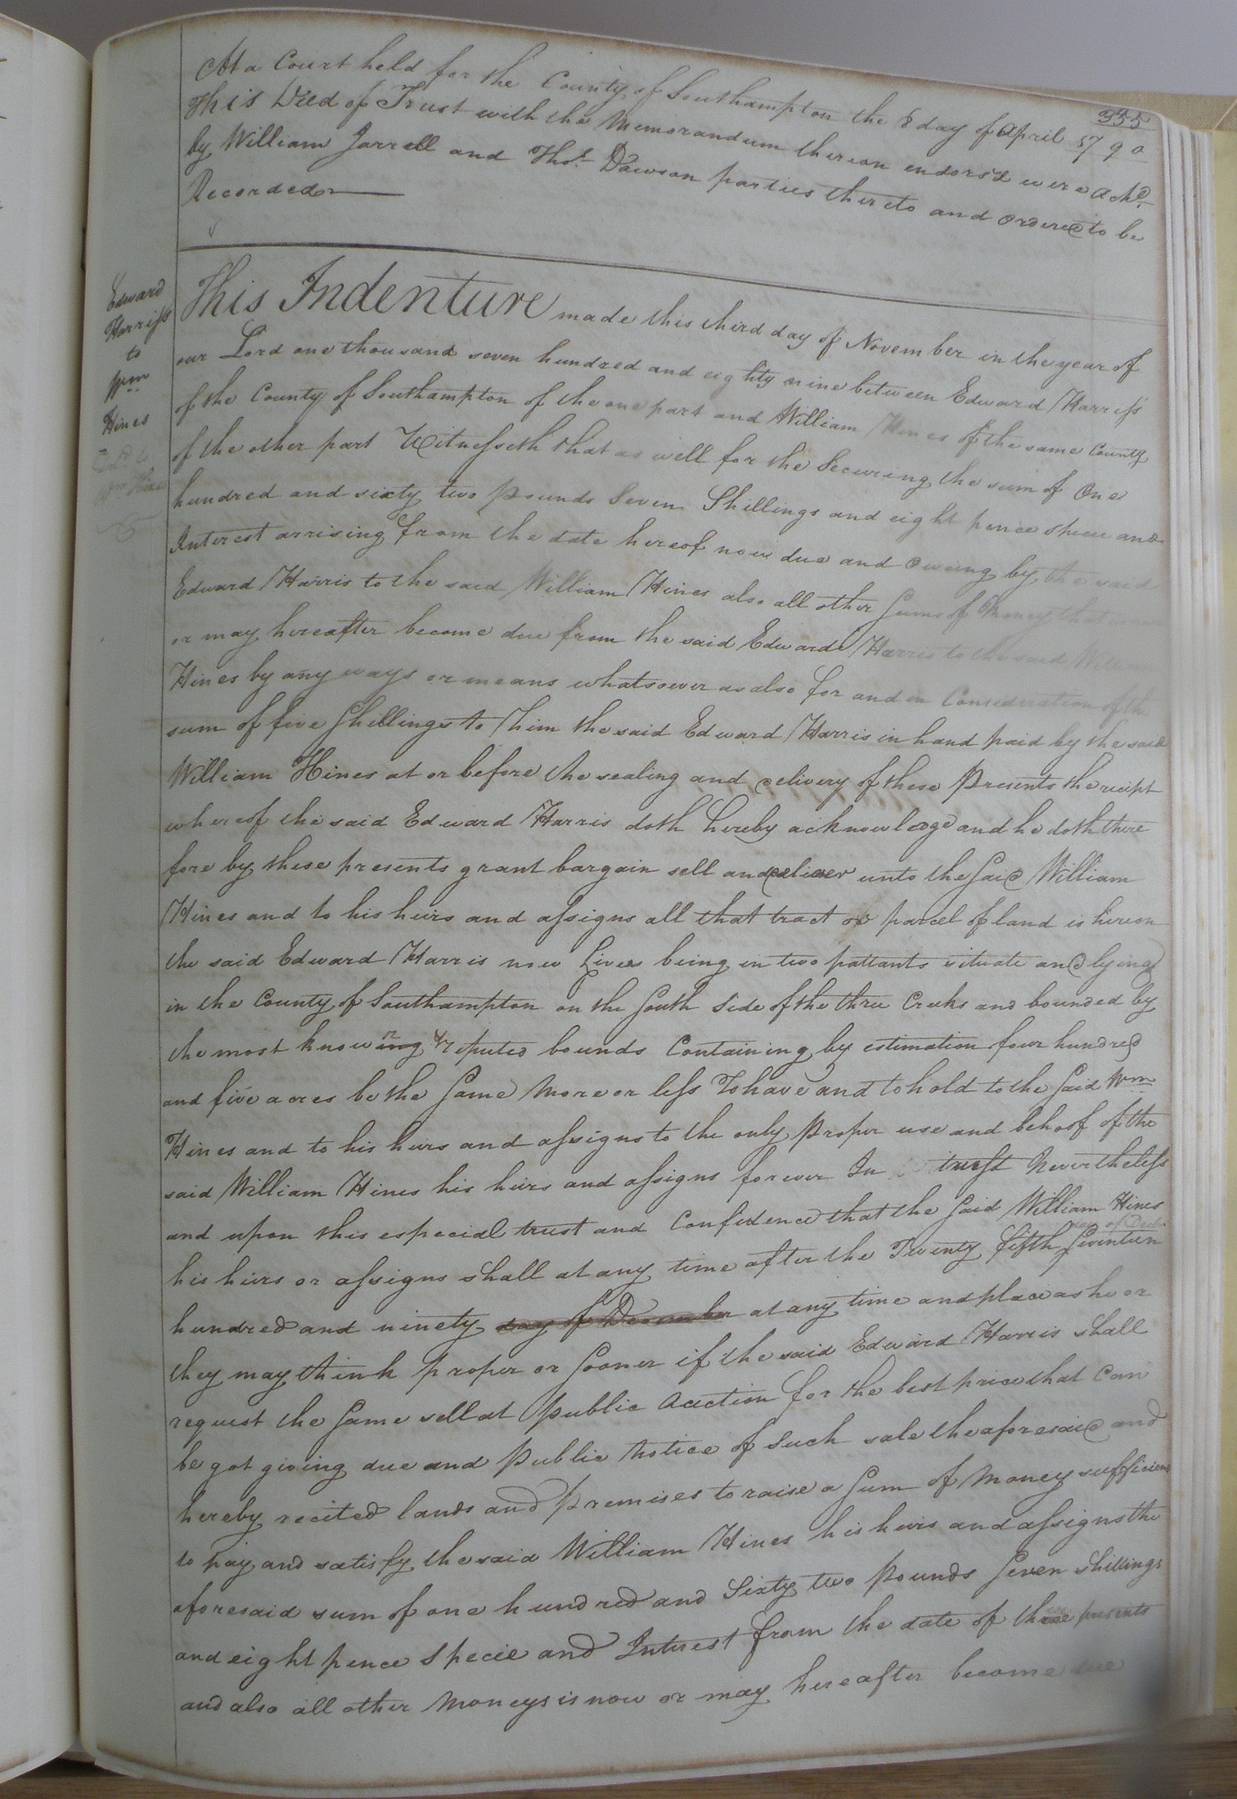 335
At a Court held for the County of Southampton the 8 day of April 1790
This Deed of Trust with the Memorandum thereon endorsd were ackd.
by William Jarrell and Thos. Dawson parties thereto and ordered to be
Recorded
Edward
Harriss
to
Wm
Hines
This Indenture made this third day of November in the year of
our Lord one thousand seven hundred and eighty nine between Edward Harriss
of the County of Southampton of the one part and William Hines of the same County
of the other part Witnesseth that as well for the Securing the sum of One
hundred and sixty two pounds Seven Shillings and eight pence specie and
Interest arrising from the date hereof now due and owing by the said
Edward Harris to the said William Hines also all other Sums of Money that
or may hereafter become due from the said Edward Harris to the said William
Hines by any ways or means whatsoever as also for and in Consideration of the
sum of five Shillings to him the said Edward Harris in hand paid by the said
William Hines at or before the sealing and delivery of these Presents the reicipt
whereof the said Edward Harris doth hereby acknowledge and he doth there
fore by these presents grant bargain sell and deliver unto the Said William
Hines and to his heirs and assigns all that tract or parcel of land whereon
the said Edward Harris now Lives being in two pattants situate and lying
in the County of Southampton on the South Side of the three Creeks and bounded by
the most known & reputed bounds Containing by estimation four hundred
and five acres be the Same More or less To have and to hold to the Said Wm
Hines and to his heirs and assigns to the only Proper use and behoof of the
said William Hines his heirs and assigns forever In trust Nevertheless
and upon this especial trust and Confidence that the Said William Hines
his heirs or assigns shall at any time after the Twenty fifth of Decbr Seventeen
hundred and ninety day of December at any time and place as he or
they may think proper or Sooner if the said Edward Harris shall
request the Same sell at Public Auction for the best price that Can
be got giving due and Public Notice of Such sale the aforesaid and
hereby recited lands and Premises to raise a Sum of Money sufficient
to pay and satisfy the said William Hines his heirs and assigns the
aforesaid sum of one hundred and Sixty two Pounds Seven shillings
and eight pence Specie and Interest from the date of these presents
and also all other Moneys is now or may hereafter become due